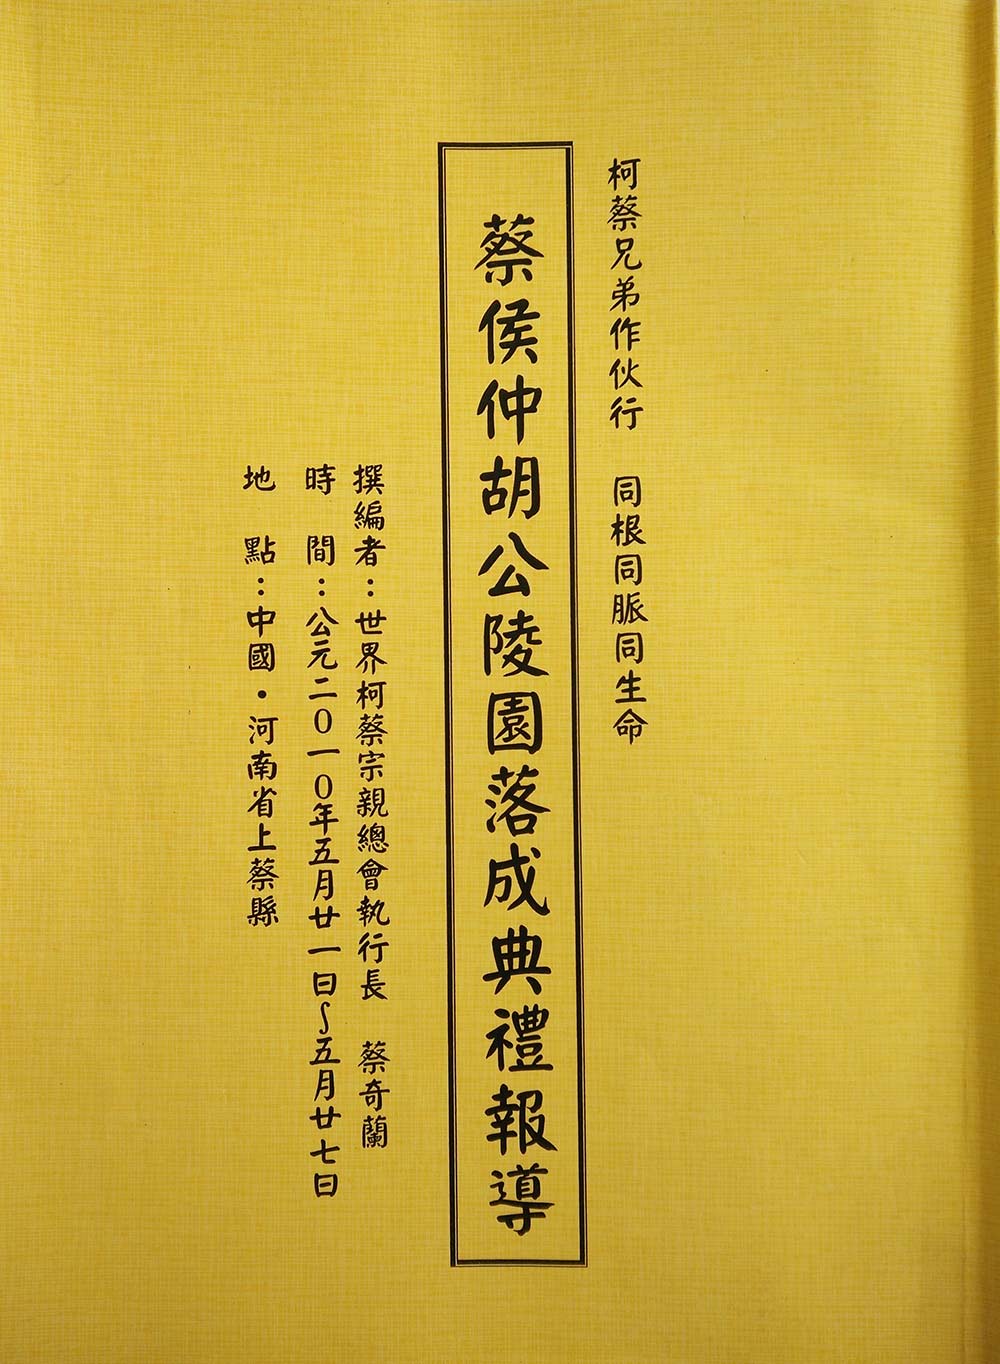 柯蔡兄弟作伙行　同根同脈同生命
蔡侯仲胡公陵園落成典禮報導
撰編者：世界柯蔡宗親總會執行長　蔡奇蘭
時　間：公元二０一０年五月廿一日～五月廿七日
地　點：中國・河南省上蔡縣